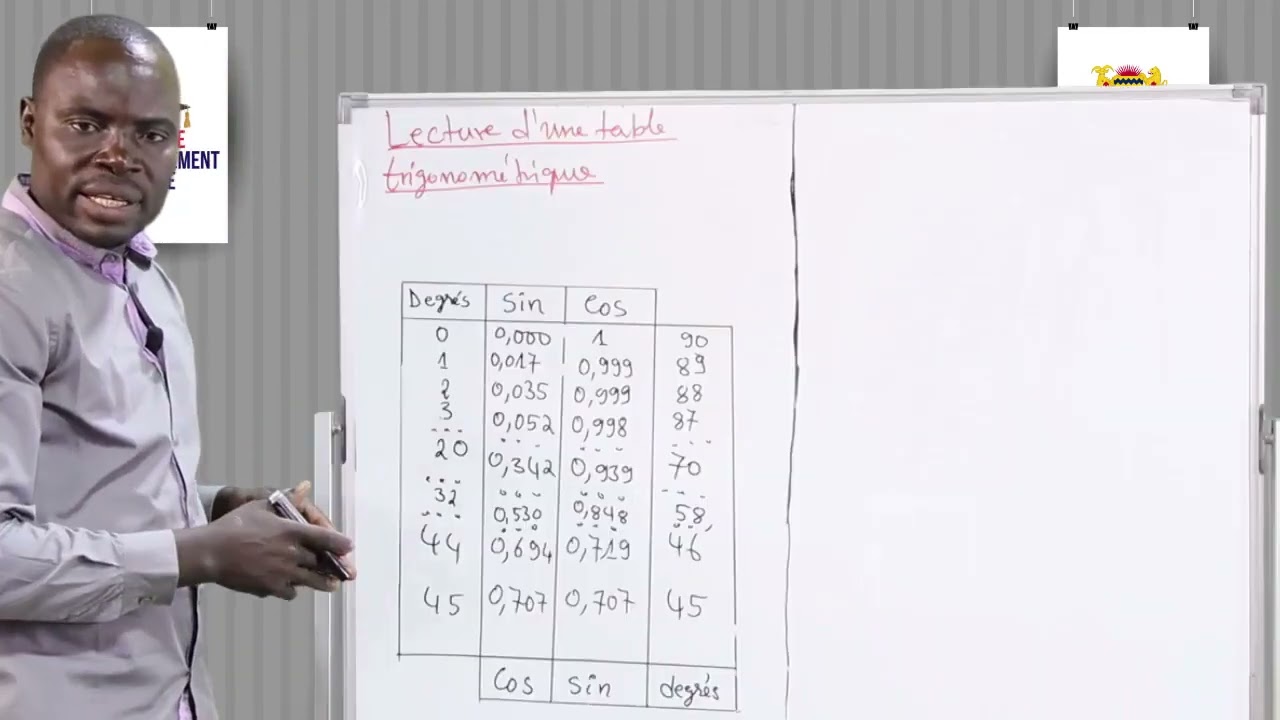 E
MENT
E
Lecture d'une table
trigonométrique
Degrés Sin Cos
0 0,000 1 90
1 0,017 0,999 89
2 0,035 0,999 88
3 0,052 0,998 87
... ... ... ...
20 0,342 0,939 70
... ... ... ...
32 0,530 0,848 58
... ... ... ...
44 0,694 0,719 46
45 0,707 0,707 45
Cos Sin degrés